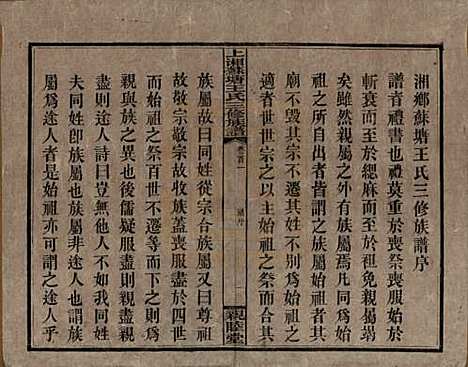 湘鄉蘇塘王氏三修族譜序
譜音也禮莫重於喪祭喪服始於
斬衰而至於緦麻而至於祖免親屬竭
矣雖然親屬之外族屬焉凡同為始
祖之所自出者皆謂之族屬故始祖之
廟不毀其宗不遷其姓之始祖而合其
適者世世不遷焉
上湘蘇塘王氏三修族譜
卷首一
親睦堂
族屬故曰同姓從宗合族屬又曰尊祖
故敬宗敬宗故收族蓋喪服盡於四世
而始祖之祭百世不遷服盡則親盡此
親與族之異也後儒疑服盡親盡
為途人者則曰豈
夫同姓即族屬也族屬非途人也謂族
屬為途人者始祖亦可謂之途人乎